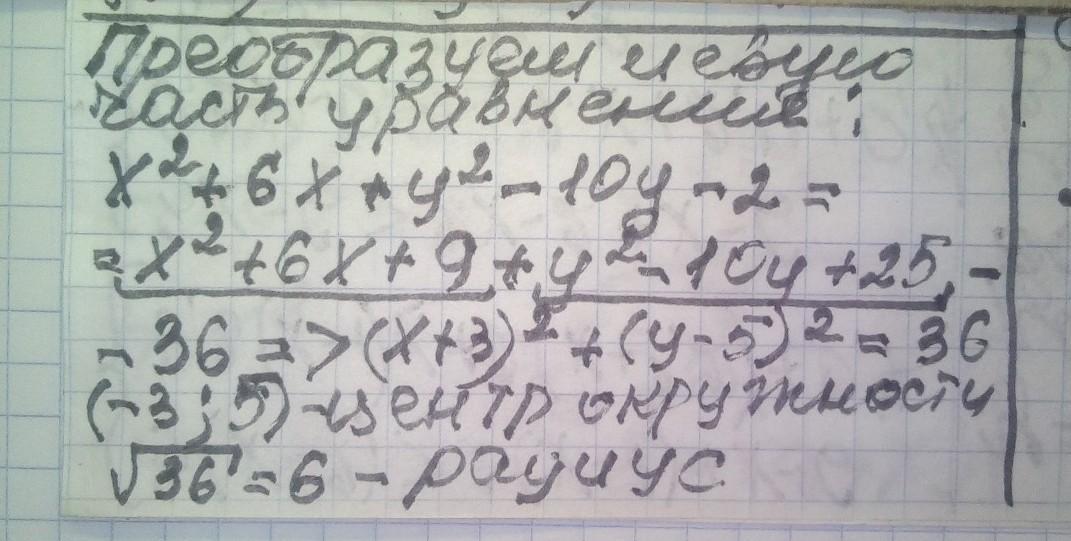 Преобразуем левую
часть уравнения:
x² + 6x + y² - 10y - 2 =
= x² + 6x + 9 + y² - 10y + 25 -
- 36 => (x+3)² + (y-5)² = 36
(-3; 5) - центр окружности
√36 = 6 - радиус